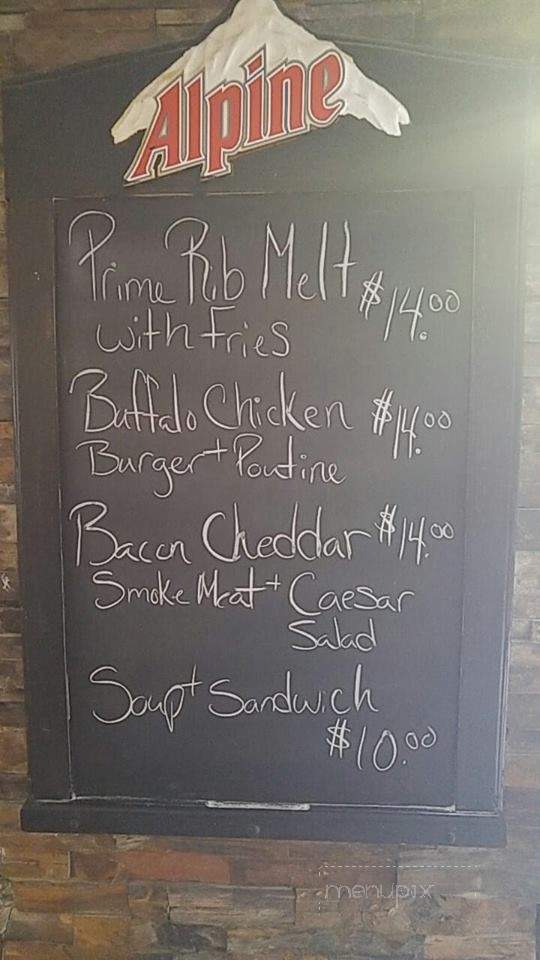 Alpine
Prime Rib Melt $14.00
with Fries
Buffalo Chicken $14.00
Burger + Poutine
Bacon Cheddar $14.00
Smoke Meat + Caesar
Salad
Soup + Sandwich
$10.00
menupix